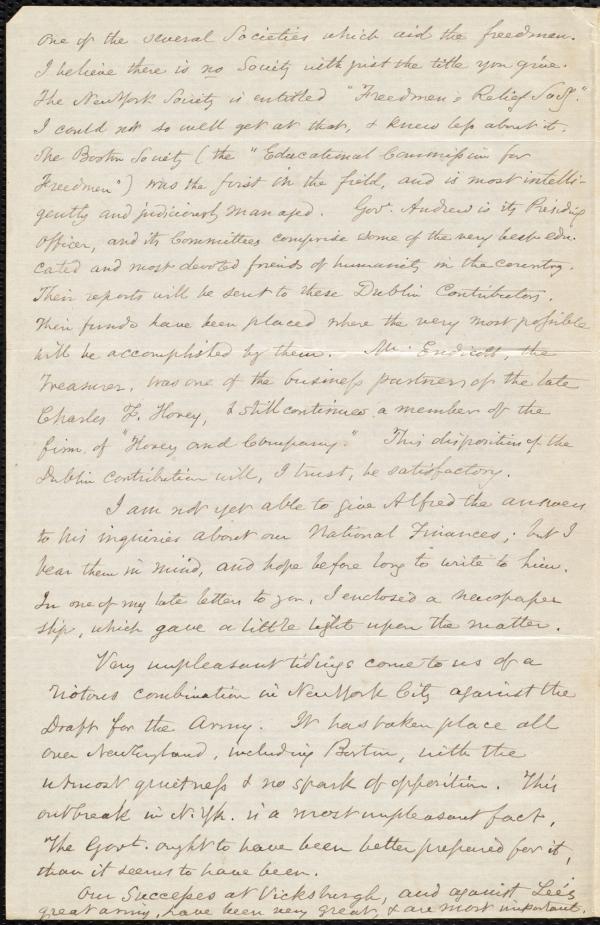 one of the several Societies which aid the freedmen.
I believe there is no Society with just the title you give.
The New York Society is entitled "Freedmen's Relief Socy."
I could not so well get at that, & knew less about it.
The Boston Society (the "Educational Commission for
Freedmen") was the first in the field, and is most intelli-
gently and judiciously managed. Gov. Andrew is its Presiding
Officer, and its Committees comprise some of the very best edu-
cated and most devoted friends of humanity in the country.
Their reports will be sent to these Dublin Contributors.
Their funds have been placed where the very most possible
will be accomplished by them. Mr. Endicott, the
Treasurer, was one of the business partners of the late
Charles F. Hovey, & still continues a member of the
firm of "Hovey and Company." This disposition of the
Dublin contribution will, I trust, be satisfactory.
I am not yet able to give Alfred the answers
to his inquiries about our National Finances; but I
bear them in mind, and hope before long to write to him.
In one of my late letters to you, I enclosed a newspaper
slip, which gave a little light upon the matter.
Very unpleasant tidings come to us of a
riotous combination in New York City against the
Draft for the Army. It has taken place all
over New England, including Boston, with the
utmost quietness & no spark of opposition. This
outbreak in N.Yk. is a most unpleasant fact.
The Govt. ought to have been better prepared for it,
than it seems to have been.
Our Successes at Vicksburgh, and against Lee's
great army, have been very great, & are most important.